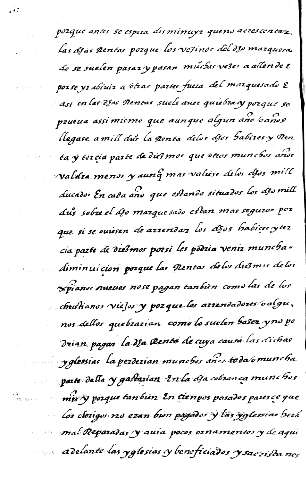 porque antes se espera disminuyr que no acrescentar
las dhas Rentas porque los vezinos del dho marquesa
do se suelen pasar y pasan muchas vezes a allende e
por te yr a biuir a otras partes fuera del marquesado E
asi en las dhas Rentas suele aver quiebra y porque se
prueua assi mismo que aunque algun año o años
llegase a mill dus la Renta de los dhos habizes y Ren
ta y tercia parte de diezmos que otros munchos años
valdra menos y aunq mas valiese de los dhos mill
ducados En cada año que estando situados los dhos mill
dus sobre el dho marquesado estan mas seguros por
que si se ouiesen de arrendar los dhos habizes y ter
cia parte de diezmos por si les podria venir muncha
diminuicion porque las Rentas de los diezmos de los
xpianos nueuos no se pagan tanbien como las de los
christianos viejos y porque los arrendadores o algu
nos dellos quebrarian como lo suelen hazer y no po
drian pagar la dha Renta de cuya causa las dichas
yglesias la perderian munchos años toda o muncha
parte della y gastarian En la dha cobranca munchos
mrs y porque tanbien En tiempos pasados parece que
los clerigos no eran bien pagados y las yglesias heran
mal Reparadas y auia pocos ornamentos y de aqui
adelante las yglesias y beneficiados y sacristanes